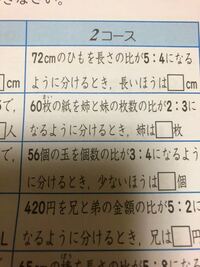 さい。
2コース
72cmのひもを長さの比が5:4になる
ように分けるとき，長いほうは□cm
cm
60枚の紙を姉と妹の枚数の比が2:3に
なるように分けるとき，姉は□枚
で，
人
56個の玉を個数の比が3:4になるよ
うに分けるとき，少ないほうは□個
420円を兄と弟の金額の比が5:2に
なるように分けるとき，兄は□円
L